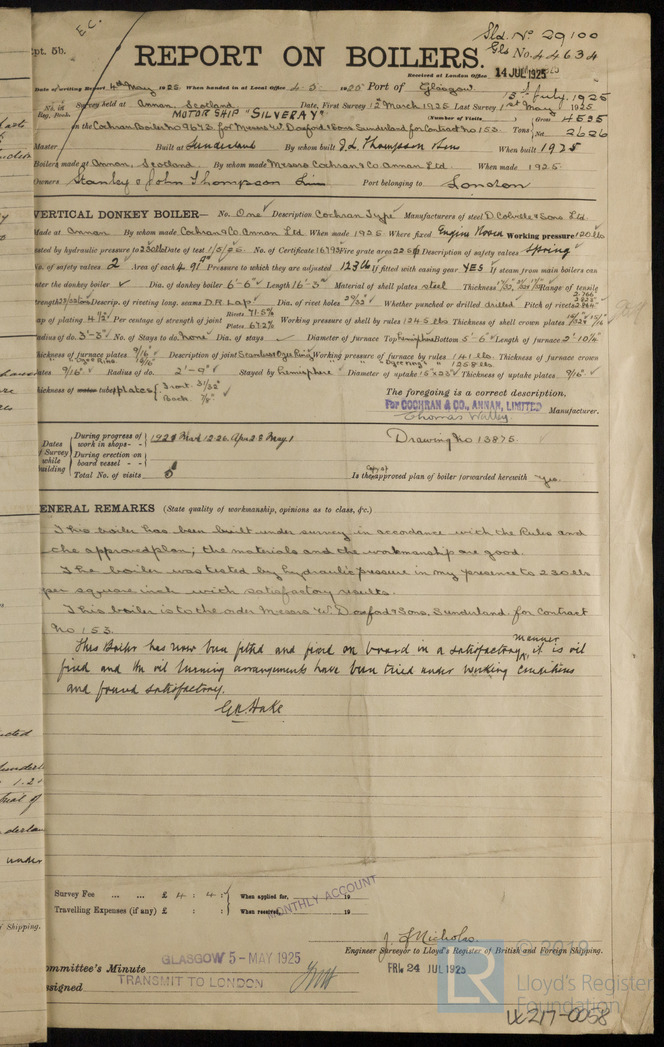 Rpt. 5b.
E.C.
Sld. No. 29100
REPORT ON BOILERS.
Gls No. 44634
Received at London Office 14 JUL 1925
Date of writing Report 4th May 1925 When handed in at Local Office 4-5 1925 Port of Glasgow
13th July. 1925
No. in Reg. Book. Survey held at Annan, Scotland Date, First Survey 12th March 1925 Last Survey 1st May 1925
MOTOR SHIP "SILVERAY" (Number of Visits) Gross 4535
on the Cochran Boiler No 9673 for Messrs W. Doxford & Sons Sunderland for Contract No 153. Tons Net 2626
Master Built at Sunderland By whom built J.L. Thompson & Sons When built 1925
Boilers made at Annan, Scotland. By whom made Messrs Cochran & Co. Annan Ltd. When made 1925.
Owners Stanley & John Thompson Port belonging to London
VERTICAL DONKEY BOILER— No. One Description Cochran Type Manufacturers of steel D. Colville & Sons. Ltd.
Made at Annan By whom made Cochran & Co. Annan Ltd When made 1925 Where fixed Engine Room Working pressure 120 lbs
tested by hydraulic pressure to 230 lbs Date of test 1/5/25 No. of Certificate Fire grate area Description of safety valves Spring
No. of safety valves 2 Area of each 4.91 Pressure to which they are adjusted 123 lb If fitted with easing gear YES If steam from main boilers can
enter the donkey boiler ✓ Dia. of donkey boiler 6'-6" Length 16'-3" Material of shell plates steel Thickness Range of tensile
strength Descrip. of riveting long. seams D.R. Lap Dia. of rivet holes 29/32" Whether punched or drilled drilled Pitch of rivets
Lap of plating Per centage of strength of joint Rivets 71.5% Plates 67.2% Working pressure of shell by rules 124.5 lbs Thickness of shell crown plates
Radius of do. 3'-3" No. of Stays to do. none Dia. of stays ✓ Diameter of furnace Top hemisphere Bottom 5'-6" Length of furnace 2'-10
Thickness of furnace plates 9/16" Description of joint Working pressure of furnace by rules 141 lbs. Thickness of furnace crown
plates 9/16" Radius of do. 2'-9" Stayed by hemisphere Diameter of uptake Thickness of uptake plates 9/16"
Thickness of tube plates Front 31/32" Back 7/8"
The foregoing is a correct description,
For COCHRAN & CO., ANNAN, LIMITED Manufacturer.
Dates of Survey while building
During progress of work in shops - - 1925 Mar 12. 26. Apr 28 May 1
During erection on board vessel - -
Total No. of visits 5
Drawing No 13875.
Is the (copy of) approved plan of boiler forwarded herewith Yes.
GENERAL REMARKS (State quality of workmanship, opinions as to class, &c.)
This boiler has been built under survey in accordance with the Rules and
the approved plan; the materials and the workmanship are good.
The boiler was tested by hydraulic pressure in my presence to 230 lbs
per square inch with satisfactory results.
This boiler is to the order Messrs W. Doxford & Sons, Sunderland, for Contract
No 153.
This Boiler has now been fitted and fixed on board in a satisfactory manner, it is oil
fired and the oil burning arrangements have been tried under working conditions
and found satisfactory.
Survey Fee ... ... £ 4 : 4 : When applied for, 19
Travelling Expenses (if any) £ : : When received, 19
MONTHLY ACCOUNT
J. S. Nicholas.
Engineer Surveyor to Lloyd's Register of British and Foreign Shipping.
GLASGOW 5 - MAY 1925
Committee's Minute
FRI. 24 JUL 1925
Assigned
TRANSMIT TO LONDON
LR
© 2019
Lloyd's Register
Foundation
W217-0058